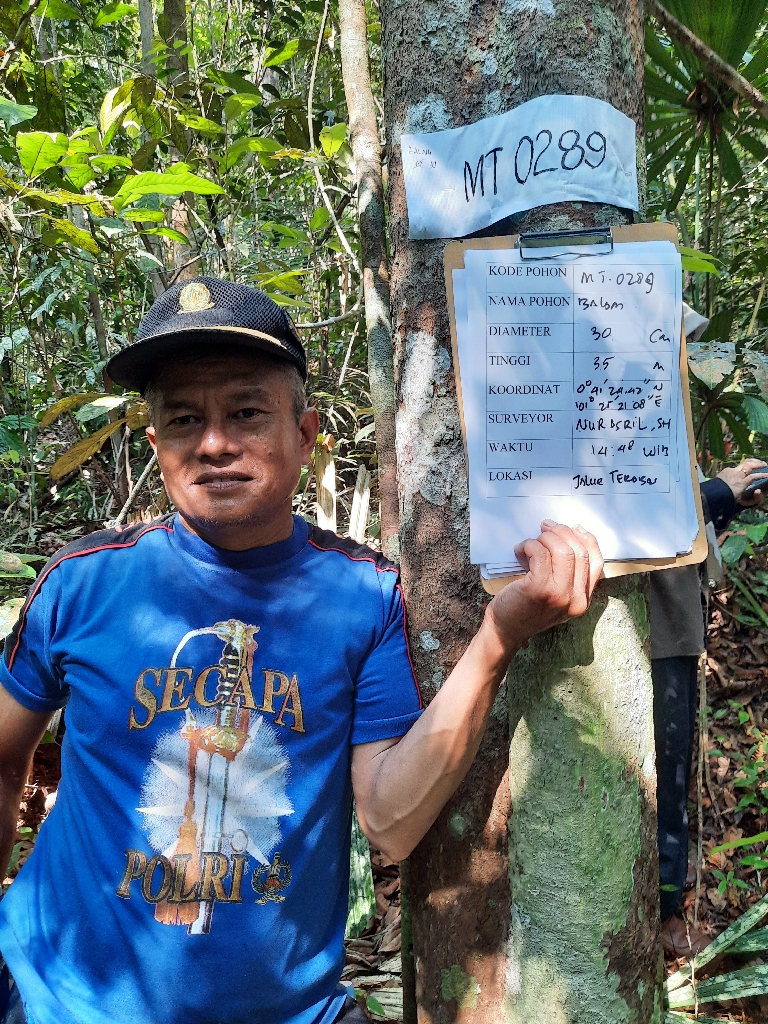 MT 0289
KODE POHON MT-0289
NAMA POHON BALAM
DIAMETER 30 Cm
TINGGI 35 m
KOORDINAT 0° 41' 24.47" N
101° 25' 21.08" E
SURVEYOR NURASRIL, SH
WAKTU 14:48 WIB
LOKASI JALUR
SECAPA
POLRI